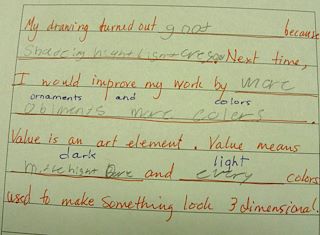 My drawing turned out good because
shadding hightlight Next time,
I would improve my work by more
ornaments and colors
more colors.
Value is an art element. Value means
dark light
and every colors
used to make something look 3 dimensional.